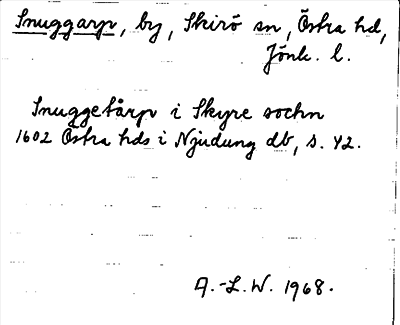 Snuggarp, by, Skirö sn, Östra hd,
Jönk. l.
Snuggetårp i Skyre sochn
1602 Östra hds i Njudung db, s. 42.
A.-L.W. 1968.